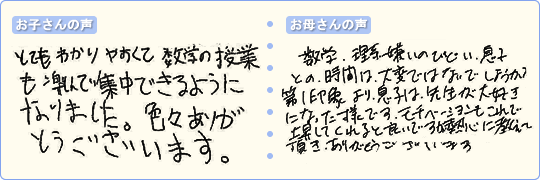 お子さんの声
とてもわかりやすくて数学の授業
も楽しんで集中できるように
なりました。色々ありが
とうございます。
お母さんの声
数学、理系嫌いのひどい息子
との時間は、大変ではないでしょうか?
第1印象より、息子は、先生が大好き
になった様です。モチベーションもこれで
上昇してくれると良いですが熱心に教えて
頂き、ありがとうございます